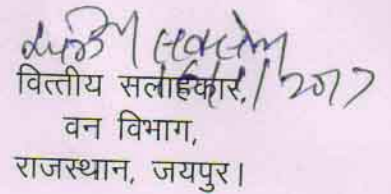 वित्तीय सलाहकार,
वन विभाग,
राजस्थान, जयपुर।